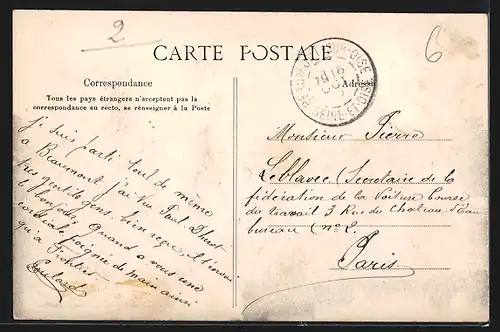 2
6
CARTE POSTALE
Correspondance
Tous les pays étrangers n'acceptent pas la
correspondance au recto, se renseigner à la Poste
Adresse
SUR-OISE
16
OCT
SEINE-ET-OISE
je suis parti tout de même
a Beaumont j'ai vu Paul
tres gentils gens, bien reçu
le bonjour, Quand a vous une
cordiale poignée de main ainsi
qu'a
Monsieur Pierre
(Secretaire de la
féderation de la Voiture Bourse
du travail 3 Rue du Chateau d'eau
bureau (no 2.
Paris